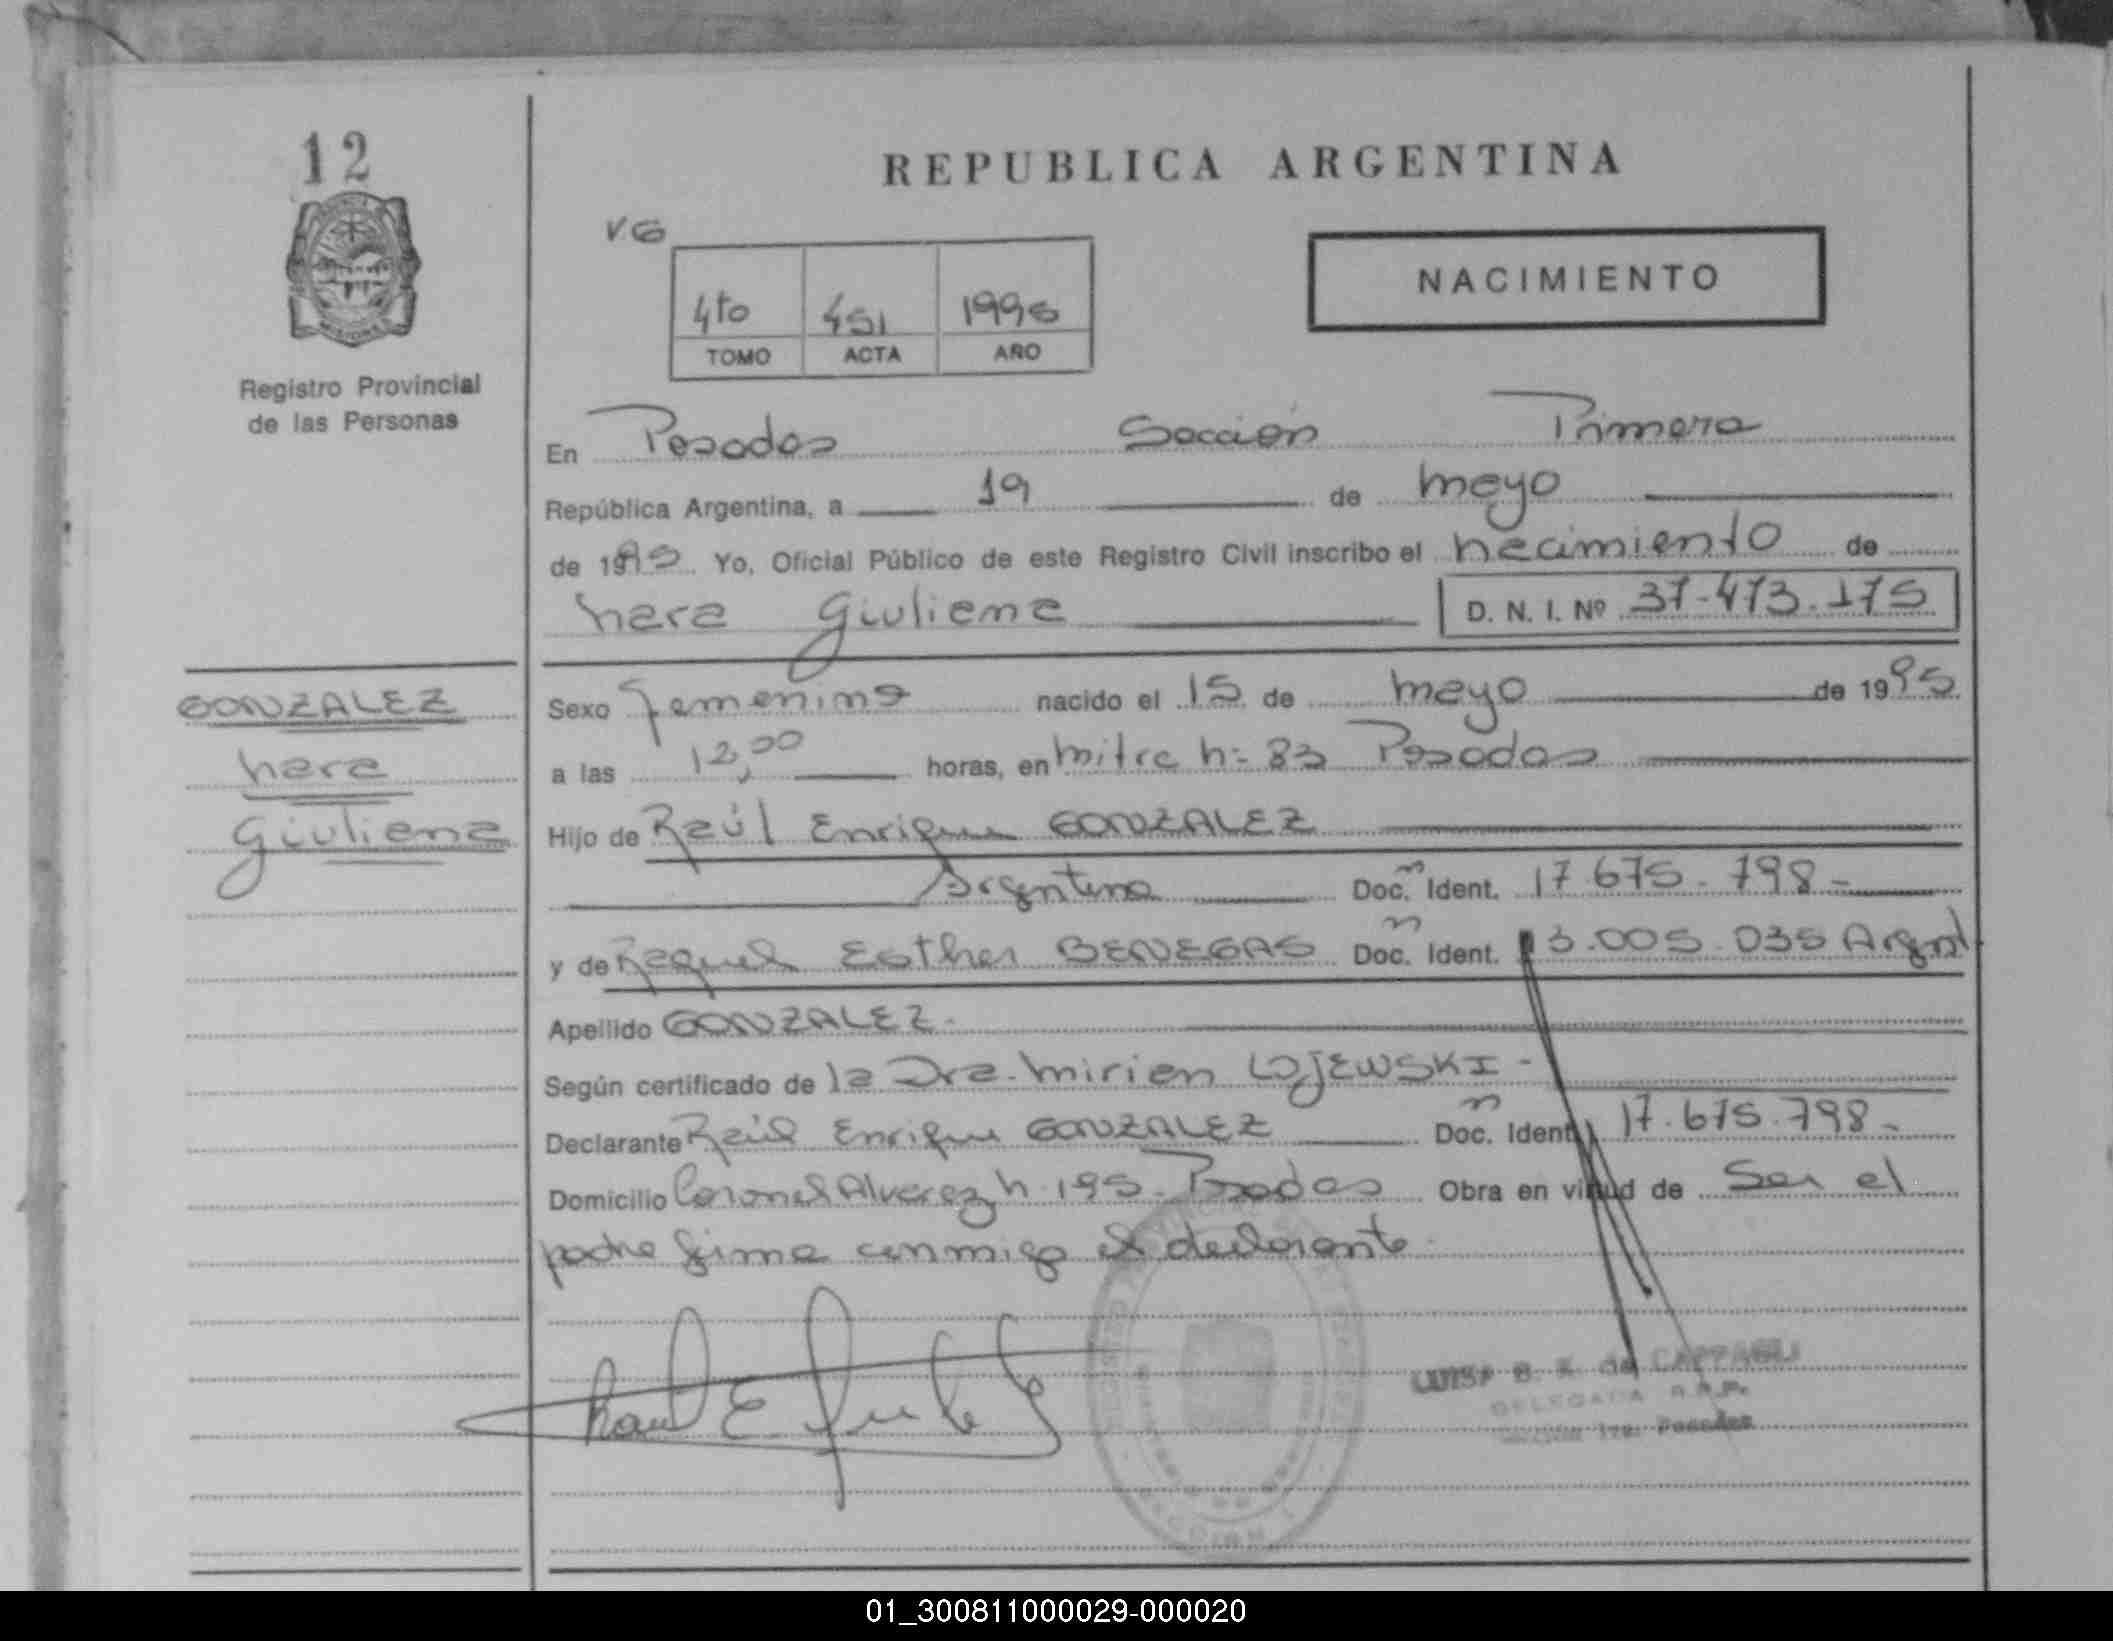 12
REPUBLICA ARGENTINA
VG
NACIMIENTO
4to 451 1995
TOMO ACTA AÑO
Registro Provincial
de las Personas
En Posadas Sección Primera
República Argentina, a 19 de mayo
de 1995 Yo, Oficial Público de este Registro Civil inscribo el nacimiento de
nara Giuliana D. N. I. Nº 37.473.175
GONZALEZ
nara
Giuliana
Sexo femenino nacido el 15 de mayo de 1995
a las 12,00 horas, en mitre n= 83 Posadas
Hijo de Raúl Enrique GONZALEZ
Argentino Doc. Ident. 17.675.798-
y de Raquel Esther BENEGAS Doc. Ident. 13.005.035 Argent
Apellido GONZALEZ-
Según certificado de la Dra. Mirien LOJEWSKI-
Declarante Raúl Enrique GONZALEZ Doc. Ident 17.675.798-
Domicilio Coronel Alvarez n. 195. Posadas Obra en virtud de Ser el
padre firma conmigo el declarante.
Raul E
de CAPPAGLI
DELEGADA R.R.P.
Sección 1ra. Posadas
01_300811000029-000020